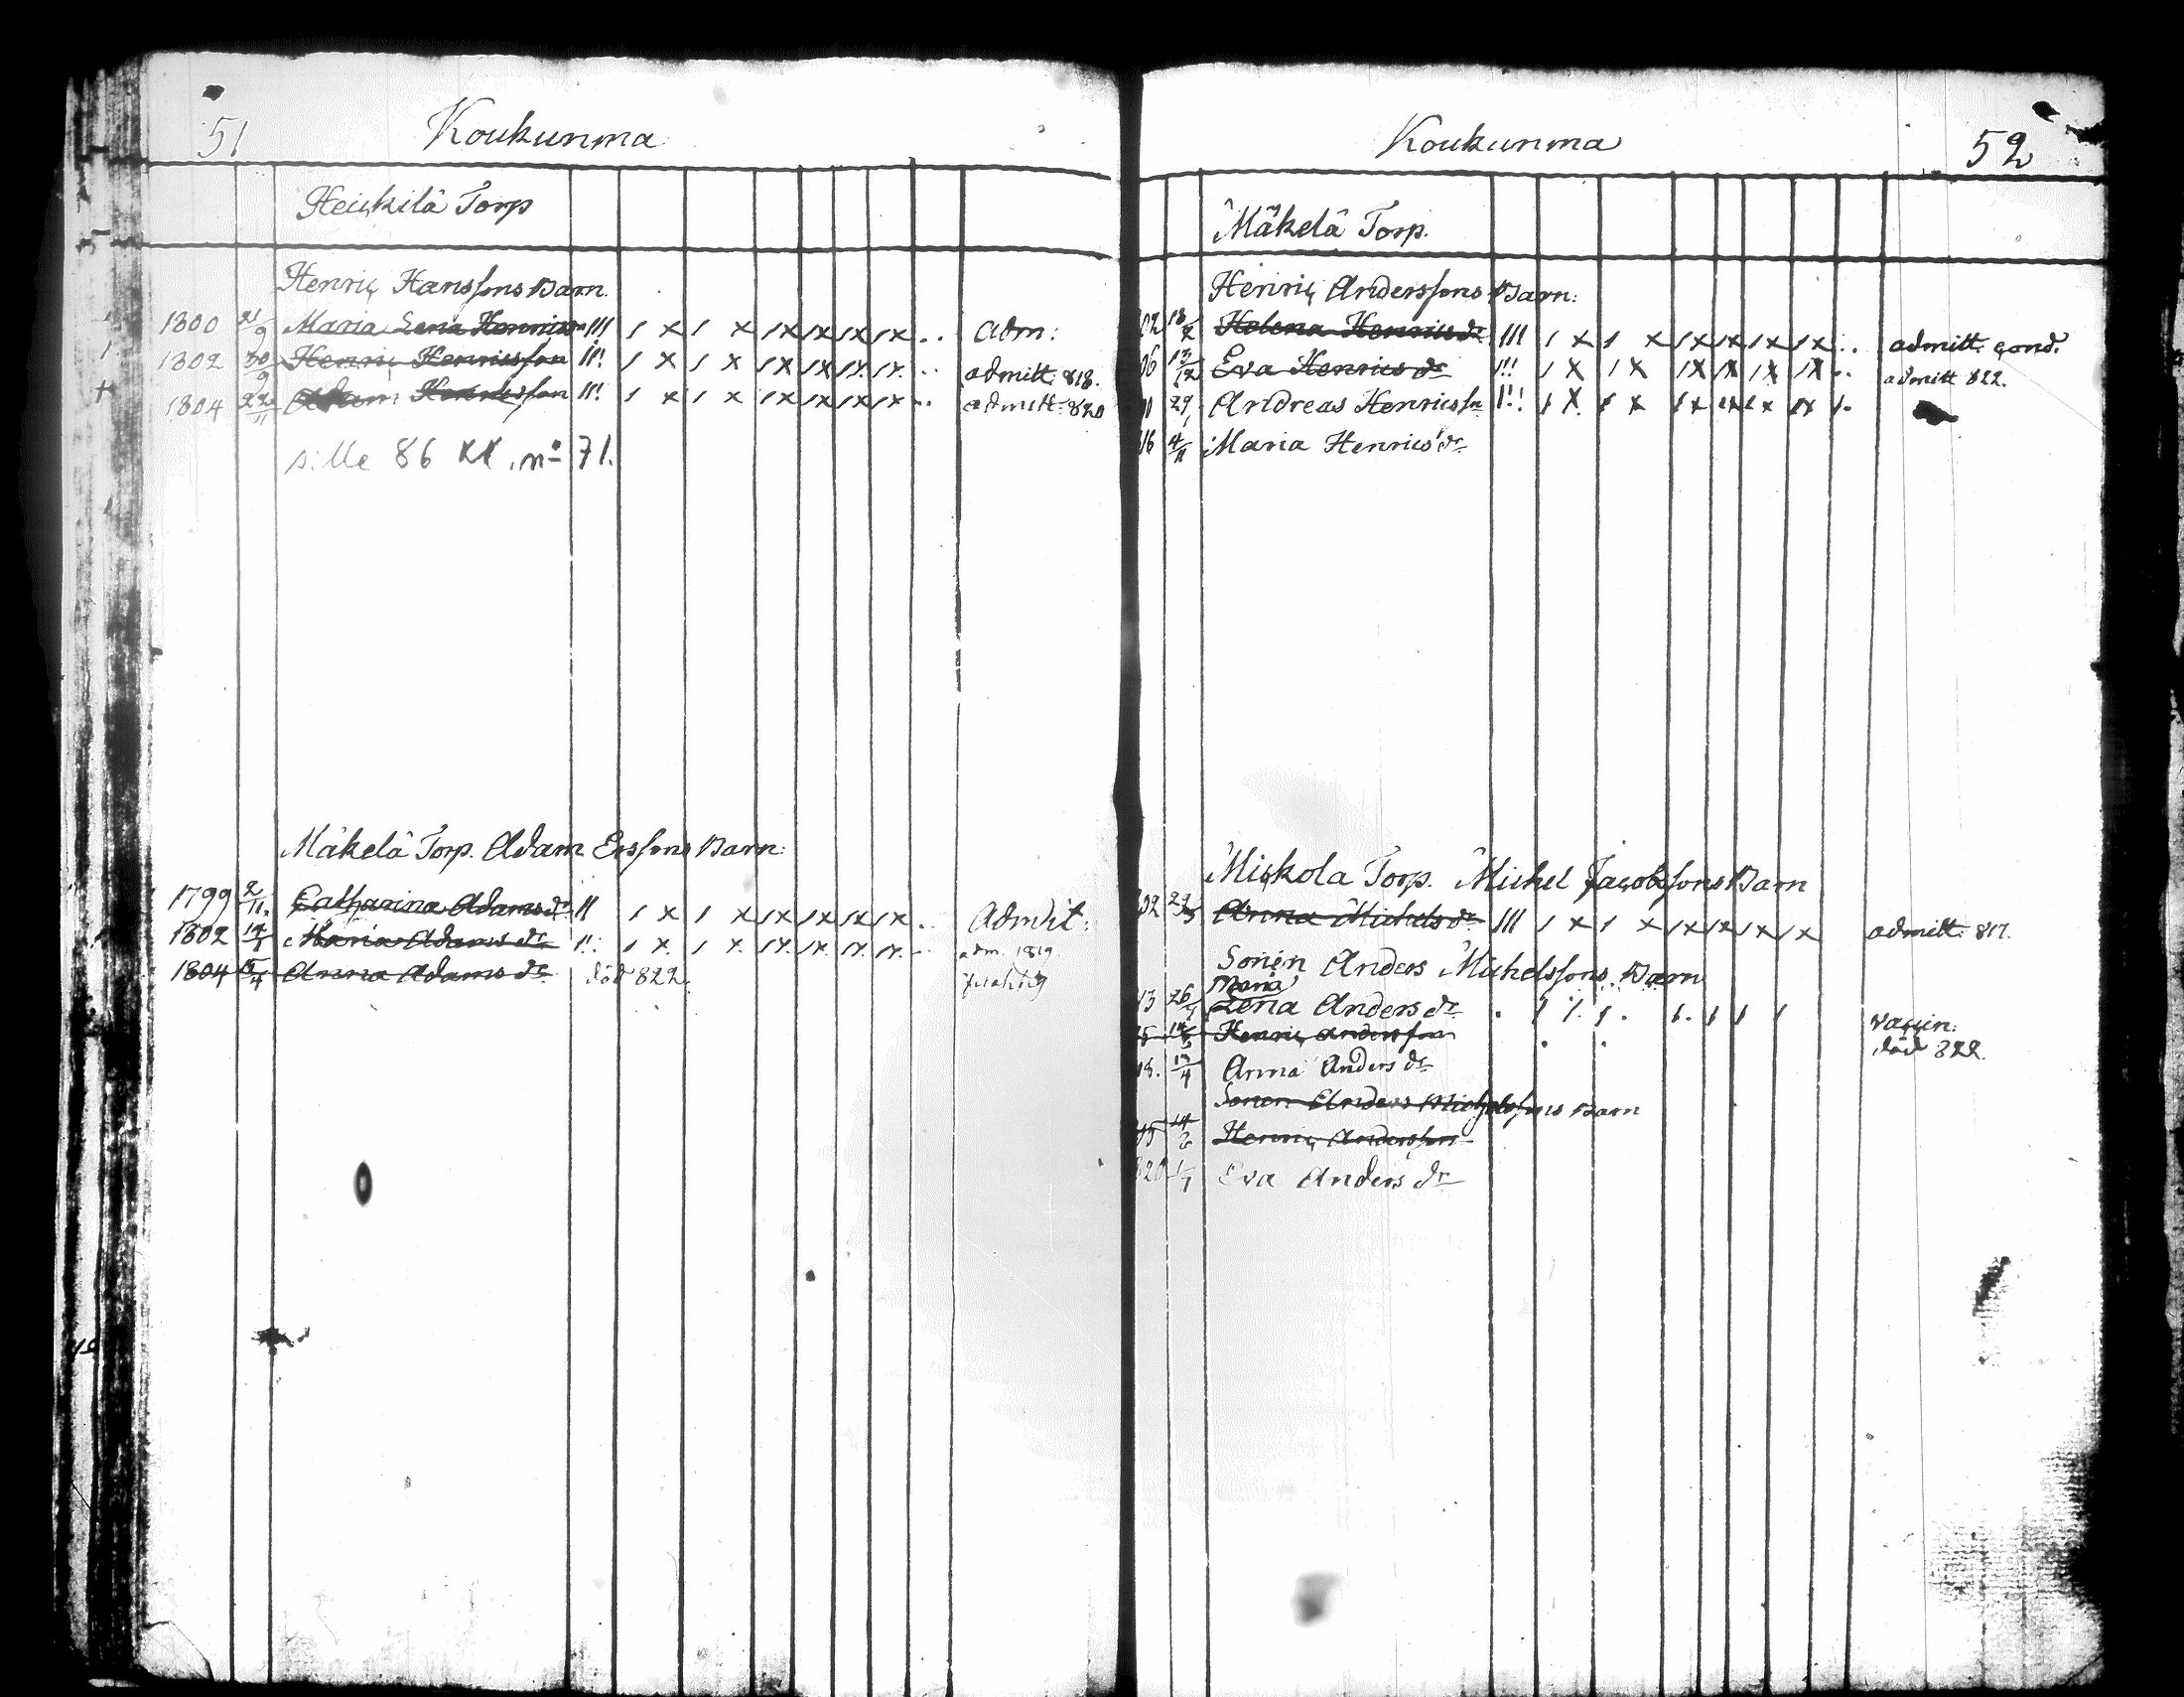 51 Koukunma
Heickilä Torp
Henric Hanssons Barn
1800 21/9 Maria Lena Henricsdr III 1 x 1 x 1x 1x 1x 1x .. adm:
1802 30/9 Henric Henricsson 1 x 1 x 1x 1x 1x. 1x. .. admitt. 818.
1804 22/11 Adam Henricsson 1 x 1 x 1x 1x 1x 1x .. admitt. 820
s. 86 no 71.
Mäkelä Torp. Adam Ersons Barn:
1799 2/11. Catharina Adamsdr II 1 x 1 x 1x 1x 1x 1x .. Admit:
1802 Maria Adamsdr 1 x. 1 x. 1x. 1x. 1x. 1x. .. adm. 1819.
1804 Anna Adams dr död 822.
Koukunma 52
Mäkelä Torp.
Henric Anderssons Barn:
02 Helena Henricsdr III 1 x 1 x 1x 1x 1x 1x .. admitt. cond.
06 13/12 Eva Henricsdr 1 x 1 x 1x 1x 1x 1x .. admitt 822.
Andreas Henricssn 1 x 1 x 1x 1x 1x 1x 1.
16 4/11 Maria Henricsdr
Mickola Torp. Michel Jacobssons Barn
02 Anna Michelsdr III 1 x 1 x 1x 1x 1x 1x admitt. 817.
Sonen Anders Michelssons Barn
Maria
13 Lena Anders dr vaccin:
15 Henric Andersson död 822.
18. 13/4 Anna Anders dr
Sonen Anders Michelssons Barn
15 14/6 Henric Andersson
820 1/7 Eva Anders dr